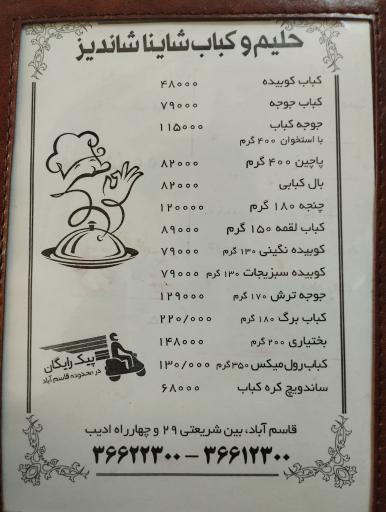 حلیم و کباب شاینا شاندیز
کباب کوبیده ۴۸۰۰۰
کباب جوجه ۷۹۰۰۰
جوجه کباب ۱۱۵۰۰۰
با استخوان ۴۰۰ گرم
پاچین ۴۰۰ گرم ۸۲۰۰۰
بال کبابی ۸۲۰۰۰
چنجه ۱۸۰ گرم ۱۲۰۰۰۰
کباب لقمه ۱۵۰ گرم ۸۹۰۰۰
کوبیده نگینی ۱۳۰ گرم ۷۹۰۰۰
کوبیده سبزیجات ۱۳۰ گرم ۷۹۰۰۰
جوجه ترش ۱۷۰ گرم ۱۲۹۰۰۰
کباب برگ ۱۸۰ گرم ۲۲۰/۰۰۰
بختیاری ۲۰۰ گرم ۱۴۸۰۰۰
کباب رول میکس ۳۵۰ گرم ۱۳۰/۰۰۰
ساندویچ کره کباب ۶۸۰۰۰
پیک رایگان
در محدوده قاسم آباد
قاسم آباد، بین شریعتی ۲۹ و چهارراه ادیب
۳۶۶۱۲۳۰۰ - ۳۶۶۲۲۳۰۰